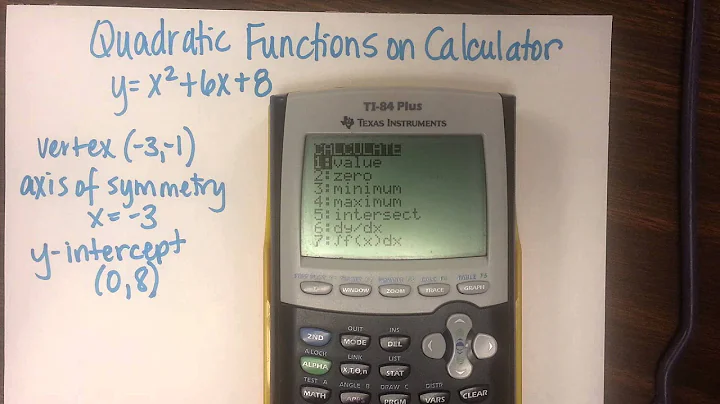 Quadratic Functions on Calculator
y=x²+6x+8
vertex (-3,-1)
axis of symmetry
x=-3
y-intercept
(0,8)
TI-84 Plus
TEXAS INSTRUMENTS
CALCULATE
1:value
2:zero
3:minimum
4:maximum
5:intersect
6:dy/dx
7:∫f(x)dx
WINDOW ZOOM TRACE GRAPH
QUIT INS
2ND MODE DEL
A-LOCK LINK LIST
ALPHA X,T,θ,n STAT
TEST A ANGLE B DRAW C DISTR
MATH APPS PRGM VARS CLEAR